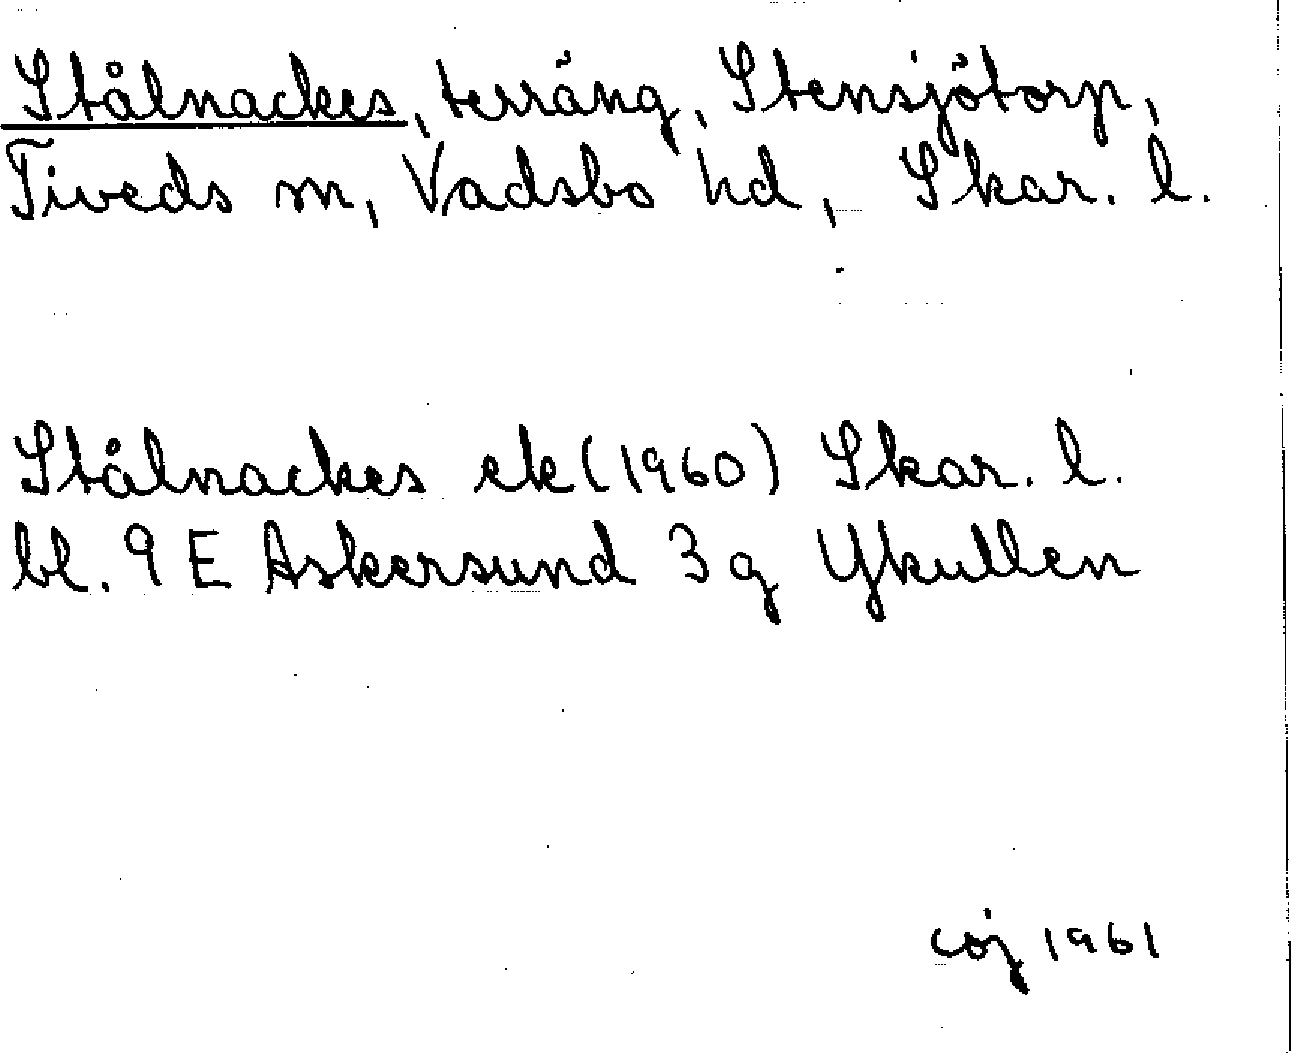 Stålnackes, terräng, Stensjötorp,
Tiveds sn, Vadsbo hd, Skar. l.
Stålnackes ek (1960) Skar. l.
bl. 9 E Askersund 3 g Ykullen
coj 1961